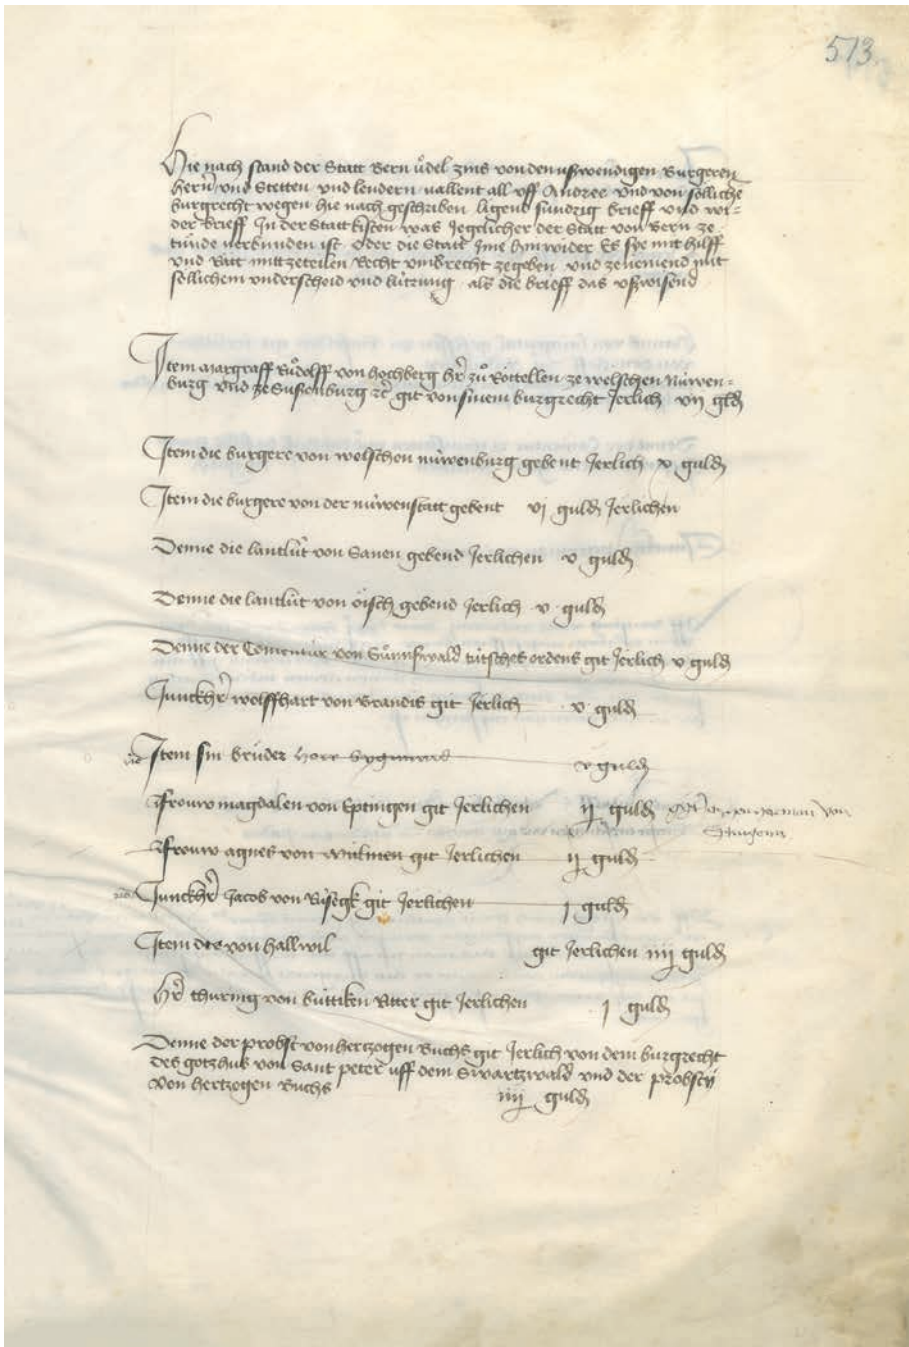 513
Hie nach stand der Statt Bern uͦdel zins von den usswendigen Burgeren
hern̄ vnd Stetten vnd lendern uallent all vff Andree vnd von soͤlliche
burgrecht wegen hie nach geschriben ligend sundrig brieff vnd wi-
der brieff In der Statt kisten was Jegelicher der Statt von Bern ze
tuͤnde uerbunden ist oder die Statt Ime hinwider Es sye mit hilff
vnd Ratt mittzeteilen Recht vmb recht zegeben vnd zenemend mit
soͤllichem vnderscheid vnd luͤtrung als die brieff das vsswisend
Item Margraff Ruͦdolff von hochberg hr̄ zuͦ Roͤttellen ze welschen Nuͤwen-
burg vnd ze Susenburg etc̄ git von sinem burgrecht Jerlich vij gld̄
Item die burgere von welschen nuͤwenburg gebent Jerlich x guld̄
Item die burgere von der nuͤwenstatt gebent vj guld̄ Jerlichen
Denne die lantluͤt von Sanen gebend Jerlichen v guld̄
Denne die lantluͤt von oͤisch gebend Jerlich v guld̄
Denne der Comentúr von Suͦmiswald tuͤtsches ordens git Jerlich v guld̄
Junckhr̄ wolffhart von Brandis git Jerlich v guld̄
Item sin bruͤder Herr v guld̄
Frouw magdalen von Eptingen git Jerlichen ij guld̄ von
Frouw agnes von Muͤlinen git Jerlichen ij guld̄
Junckhr̄ Jacob von Rúsegk git Jerlichen j guld̄
Item die von hallwil git Jerlichen iiij guld̄
Hr̄ thuring von buttiken Ritter git Jerlichen j guld̄
Denne der probst von hertzogen Buchs git Jerlich von dem burgrecht
des gotzhus von Sant peter uff dem Swartzwald vnd der probsty
Von hertzogen Buchs iiij guld̄